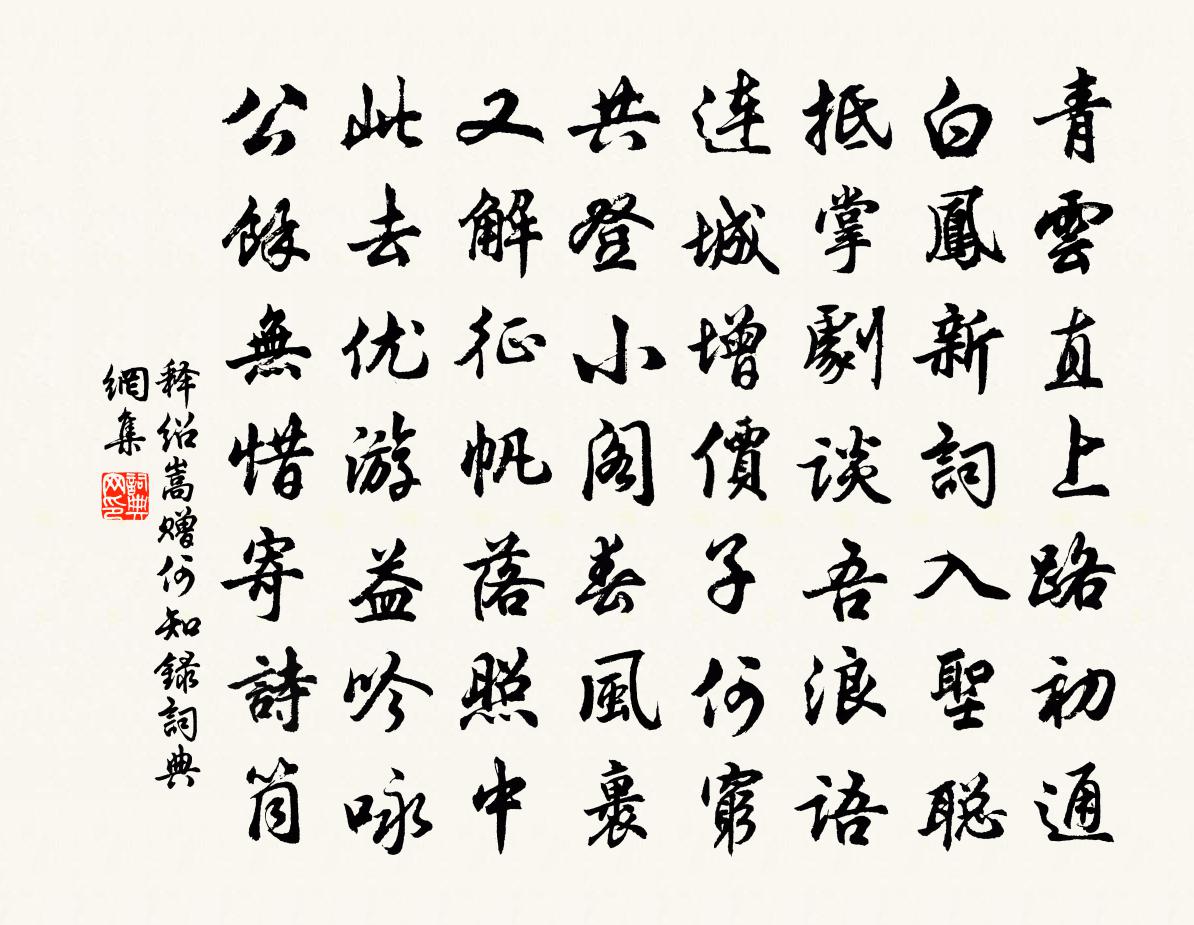 青雲直上路初通
白鳳新詞入聖聡
抵掌劇談吾浪語
连城增價子何窮
共登小阁春風裹
又解征帆落照中
此去优游益吟咏
公餘無惜寄詩筒
释绍嵩赠何知録詞典
網集
詞典网印